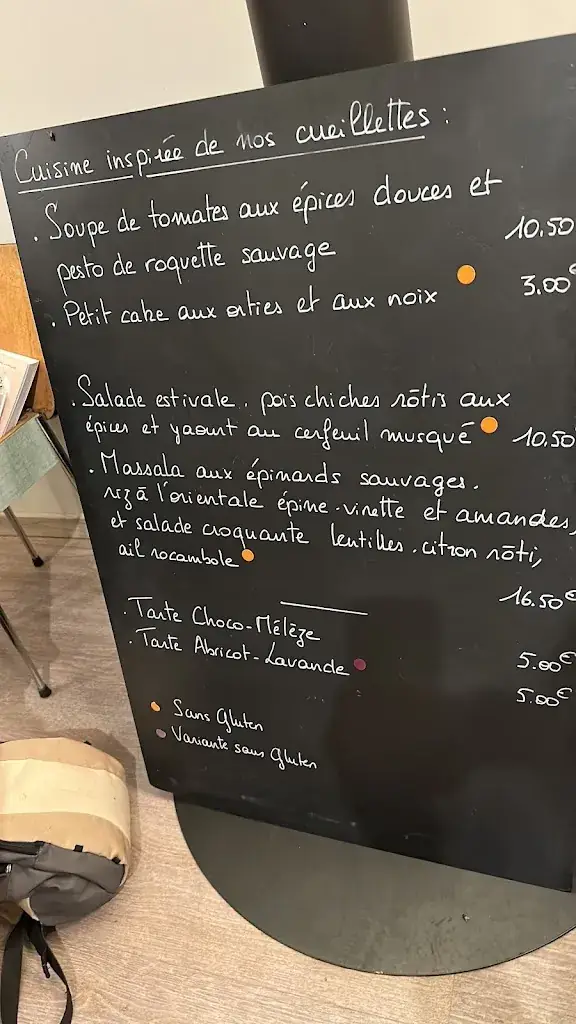 Cuisine inspirée de nos cueillettes :
. Soupe de tomates aux épices douces et
pesto de roquette sauvage 10.50
. Petit cake aux orties et aux noix 3.00€
. Salade estivale, pois chiches rōtis aux
épices et yaourt au cerfeuil musqué 10.50
. Massala aux épinards sauvages,
riz à l'orientale épine-vinette et amandes,
et salade croquante lentilles, citron rōti,
ail rocambole
16.50€
. Tarte Choco-Mélèze 5.00€
. Tarte Abricot-Lavande 5.00€
Sans Gluten
Variante sans Gluten